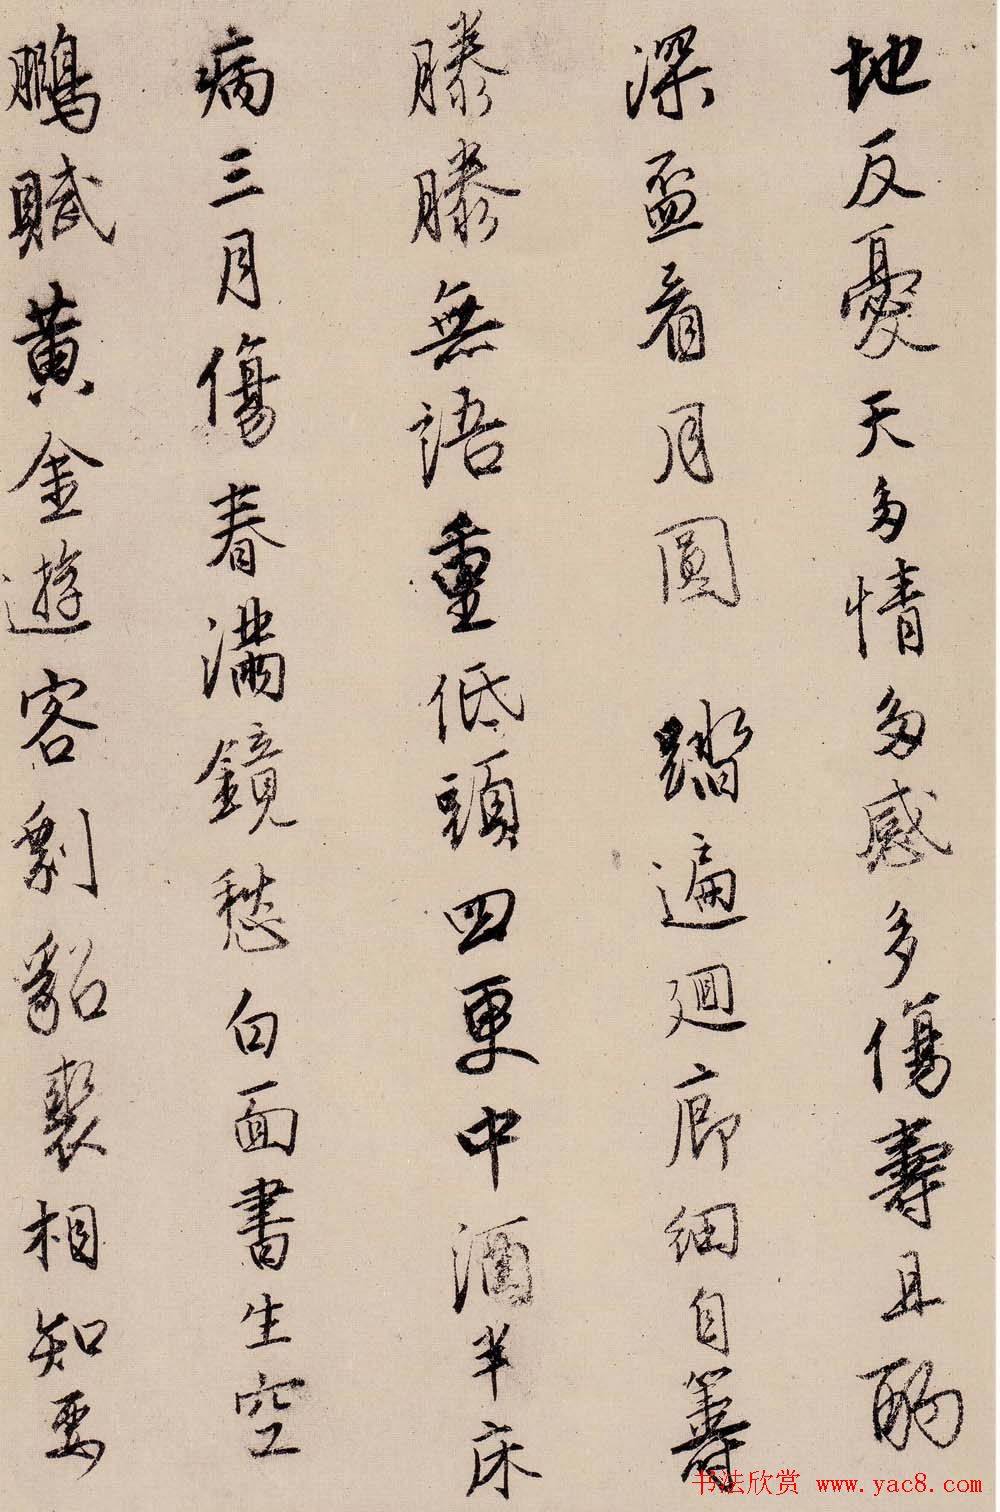 地反憂天多情多感多傷壽且酌
深盃看月圓 踏遍迴廊細自籌
滕滕無語重低頭四更中酒半床
病三月傷春滿鏡愁白面書生空
鵩賦黃金遊客剩貂裘相知要
书法欣赏 www.yac8.com